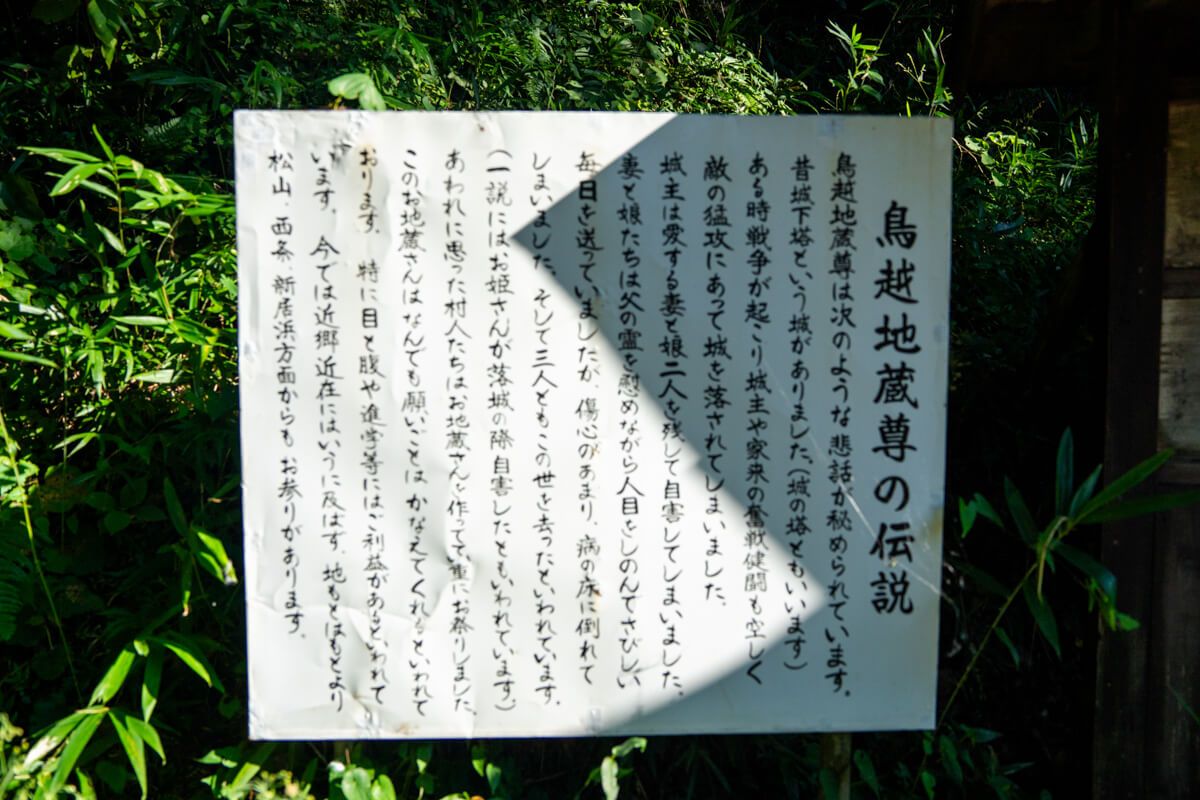 鳥越地蔵尊の伝説
鳥越地蔵尊は次のような悲話が秘められています。
昔城下塔という城がありました。(城の塔ともいいます)
ある時戦争が起こり城主や家来の奮戦健闘も空しく
敵の猛攻にあって城を落されてしまいました。
城主は愛する妻と娘二人を残して自害してしまいました。
妻と娘たちは父の霊を慰めながら人目をしのんでさびしい
毎日を送っていましたが、傷心のあまり、病の床に倒れて
しまいました。そして三人ともこの世を去ったといわれています。
(一説にはお姫さんが落城の際自害したともいわれています)
あわれに思った村人たちはお地蔵さんを作って丁重にお祭りしました
このお地蔵さんはなんでも願いことはかなえてくれるといわれて
おります。特に目と腹や進学等にはご利益があるといわれて
います。今では近郷近在にはいうに及はす、地もとはもとより
松山、西条、新居浜方面からもお参りがあります。